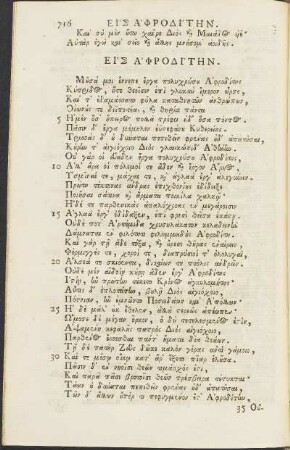 716 ΕΙΣ ΑΦΡΟΔΙΤΗΝ.
Καὶ σὺ μὲν οὕτω χαῖρε Διὸς καὶ Μαιάδος υἱέ·
Αὐτὰρ ἐγὼ καὶ σεῖο καὶ ἄλλης μνήσομ' ἀοιδῆς.
ΕΙΣ ΑΦΡΟΔΙΤΗΝ.
Μοῦσά μοι ἔννεπε ἔργα πολυχρύσου Ἀφροδίτης
Κύπριδος, ἥτε θεοῖσιν ἐπὶ γλυκὺν ἵμερον ὦρσε,
Καί τ' ἐδαμάσσατο φῦλα καταθνητῶν ἀνθρώπων,
Οἰωνούς τε διιπετέας, καὶ θηρία πάντα
5 Ἠμὲν ὅσ' ἤπειρος πολλὰ τρέφει ἠδ' ὅσα πόντος·
Πᾶσιν δ' ἔργα μέμηλεν ἐϋστεφάνου Κυθερείης.
Τρισσὰς δ' οὐ δύναται πεπιθεῖν φρένας οὐδ' ἀπατῆσαι,
Κούρην τ' αἰγιόχοιο Διὸς γλαυκώπιδ' Ἀθήνην·
Οὐ γάρ οἱ εὔαδεν ἔργα πολυχρύσου Ἀφροδίτης,
10 Ἀλλ' ἄρα οἱ πόλεμοί τε ἅδον καὶ ἔργον Ἄρηος,
Ὑσμῖναί τε, μάχαι τε, καὶ ἀγλαὰ ἔργ' ἀλεγύνειν.
Πρώτη τέκτονας ἄνδρας ἐπιχθονίους ἐδίδαξε
Ποιῆσαι σάτινα καὶ ἅρματα ποικίλα χαλκῷ
Ἡ δέ τε παρθενικὰς ἁπαλόχροας ἐν μεγάροισιν
15 Ἀγλαὰ ἔργ' ἐδίδαξεν, ἐπὶ φρεσὶ θεῖσα ἑκάστῃ.
Οὐδέ ποτ' Ἀρτέμιδα χρυσηλάκατον κελαδεινὴν
Δάμναται ἐν φιλότητι φιλομμειδὴς Ἀφροδίτη·
Καὶ γὰρ τῇ ἅδε τόξα, καὶ οὔρεσι θῆρας ἐναίρειν,
Φόρμιγγές τε, χοροί τε, διαπρύσιοί τ' ὀλολυγαί,
20 Ἄλσεά τε σκιόεντα, δικαίων τε πόλις ἀνδρῶν.
Οὐδὲ μὲν αἰδοίῃ κούρῃ ἅδεν ἔργ' Ἀφροδίτης
Ἱστίῃ, ἣν πρώτην τέκετο Κρόνος ἀγκυλομήτης·
Αὖτις δ' ὁπλοτάτην, βουλῇ Διὸς αἰγιόχοιο,
Πότνιαν, ἣν ἐμνῶντο Ποσειδάων καὶ Ἀπόλλων·
25 Ἡ δὲ μάλ' οὐκ ἔθελεν, ἀλλὰ στερεῶς ἀπέειπεν·
Ὤμοσε δὲ μέγαν ὅρκον, ὃ δὴ τετελεσμένος ἐστίν,
Ἁψαμένη κεφαλῆς πατρὸς Διὸς αἰγιόχοιο
Παρθένος ἔσσεσθαι πάντ' ἤματα δῖα θεάων.
Τῇ δὲ πατὴρ Ζεὺς δῶκε καλὸν γέρας ἀντὶ γάμοιο,
30 Καί τε μέσῳ οἴκῳ κατ' ἄρ' ἕζετο πῖαρ ἑλοῦσα.
Πᾶσιν δ' ἐν νηοῖσι θεῶν τιμάοχός ἐστι,
Καὶ παρὰ πᾶσι βροτοῖσι θεῶν πρέσβειρα τέτυκται·
Τάων οὐ δύναται πεπιθεῖν φρένας οὐδ' ἀπατῆσαι,
Τῶν δ' ἄλλων οὔπέρ τι πεφυγμένον ἔστ' Ἀφροδίτην,
35 Οὔ-